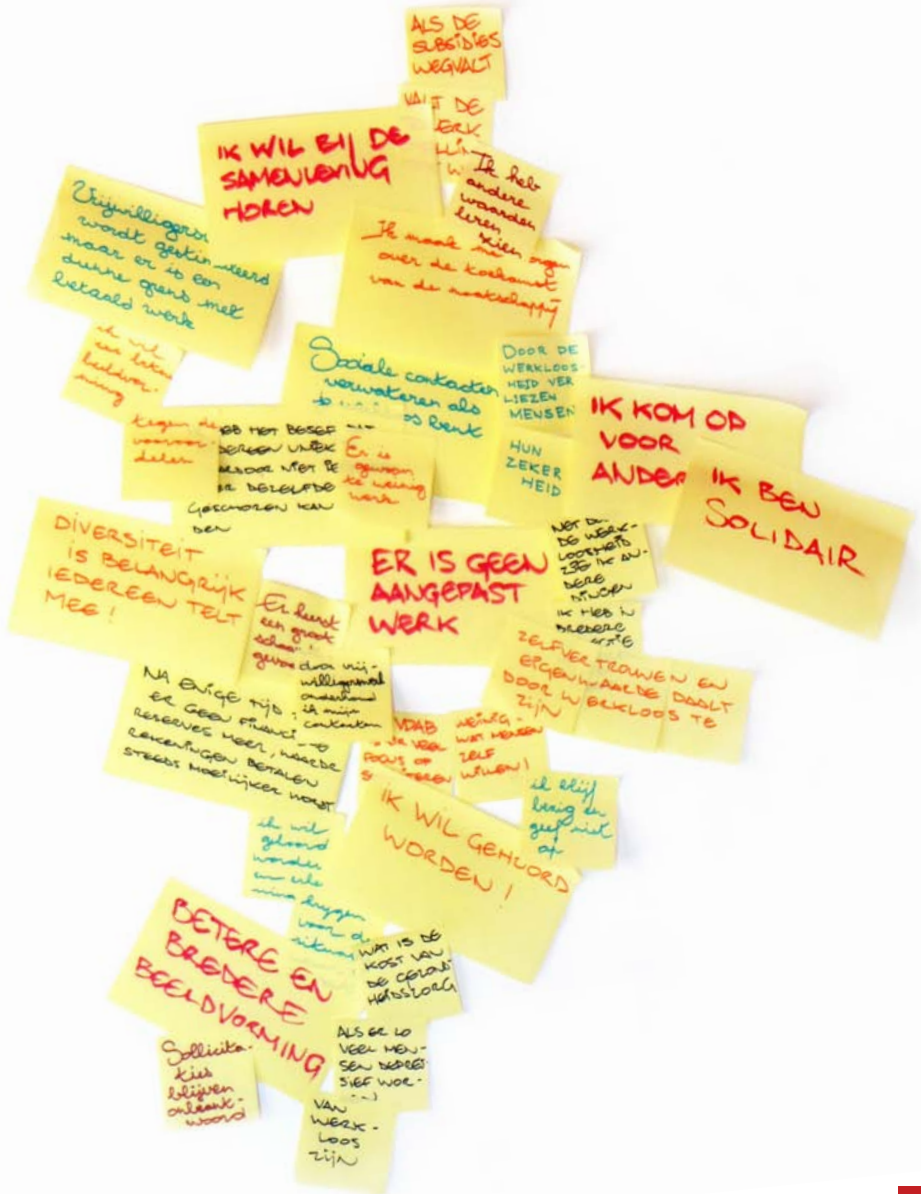 ALS DE
SUBSIDIES
WEGVALT
VALT DE
IK WIL BIJ DE
SAMENLEVING
HOREN
Ik heb
andere
waarden
leren
zien
Vrijwilligers
wordt gestimuleerd
maar er is een
dunne grens met
betaald werk
Ik maak me
over de toekomst
van de maatschappij
ik wil
een
Sociale contacten
verwateren als
DOOR DE
WERKLOOS-
HEID VER
LIEZEN
MENSEN
HUN
ZEKER
HEID
IK KOM OP
VOOR
ANDER
IK BEN
SOLIDAIR
tegen de
vooroor-
delen
HET BESEF
IEDEREEN UNIEK
DAARDOOR NIET IE
DEZELFDE
GESCHOREN KAN
DEN
Er is
gewoon
te weinig
werk
DIVERSITEIT
IS BELANGRIJK
IEDEREEN TELT
MEE!
ER IS GEEN
AANGEPAST
WERK
DE WERK-
LOOSHEID
ZIE IK AN-
DERE
DINGEN
IK HEB 'N
BREDERE
Er heerst
een groot
door vrij-
willigerswerk
onderhoud
ik mijn
contacten
ZELFVERTROUWEN EN
EIGENWAARDE DAALT
DOOR WERKLOOS TE
ZIJN
NA ENIGE TIJD
ER GEEN
RESERVES MEER, WAARDE
REKENINGEN BETALEN
STEEDS MOEILIJKER WORDT
VDAB
VEEL
FOCUS OP
WEINIG
WAT MENSEN
ZELF
WILLEN!
ik blijf
bezig en
geef niet
op
IK WIL GEHOORD
WORDEN!
ik wil
gehoord
worden
en erke
krijgen
voor de
BETERE EN
BREDERE
BEELDVORMING
WAT IS DE
KOST VAN
DE GEZOND
HEIDSZORG
ALS ER ZO
VEEL MEN-
SEN DEPRES
SIEF WOR-
VAN
WERK-
LOOS
ZIJN
Sollicita-
ties
blijven
onbeant-
woord